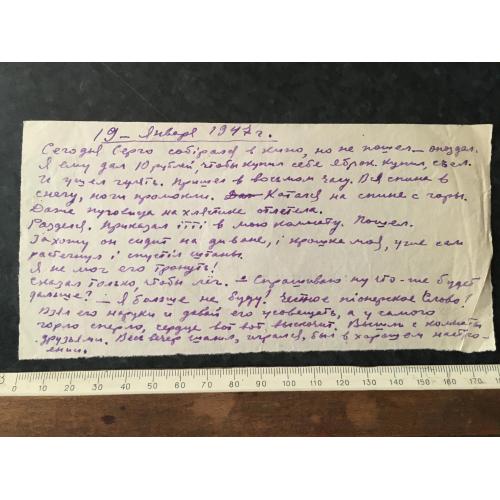 19 – Января 1947 г.
Сегодня Серго собірался в кино, но не пошел – опоздал.
Я ему дал 10 рублей, чтобы купил себе яблок. Купил, съел.
И ушел гулять. Пришел в восьмом часу. Вся спина в
снегу, ноги промокли. Катался на спине с горы.
Даже пуговица на хлястике отлетела.
Разделся. Приказал ітті в мою комнату. Пошел.
Захожу он сидит на диване, і крошка моя, уже сам
растегнул і спустіл штаны.
Я не мог его тронуть!
Сказал только, чтобы лёг. – Спрашиваю ну что-же будет
дальше? – Я больше не буду! Честное піонерское Слово!
Взял его на руки и давай его усовещать, а у самого
горло сперло, сердце вот вот выскочит. Вышли с комнаты
друзьями. Весь вечер шалил, игрался, был в хорошем настро-
ении.
0 10 20 30 40 50 60 70 80 90 100 110 120 130 140 150 160 170